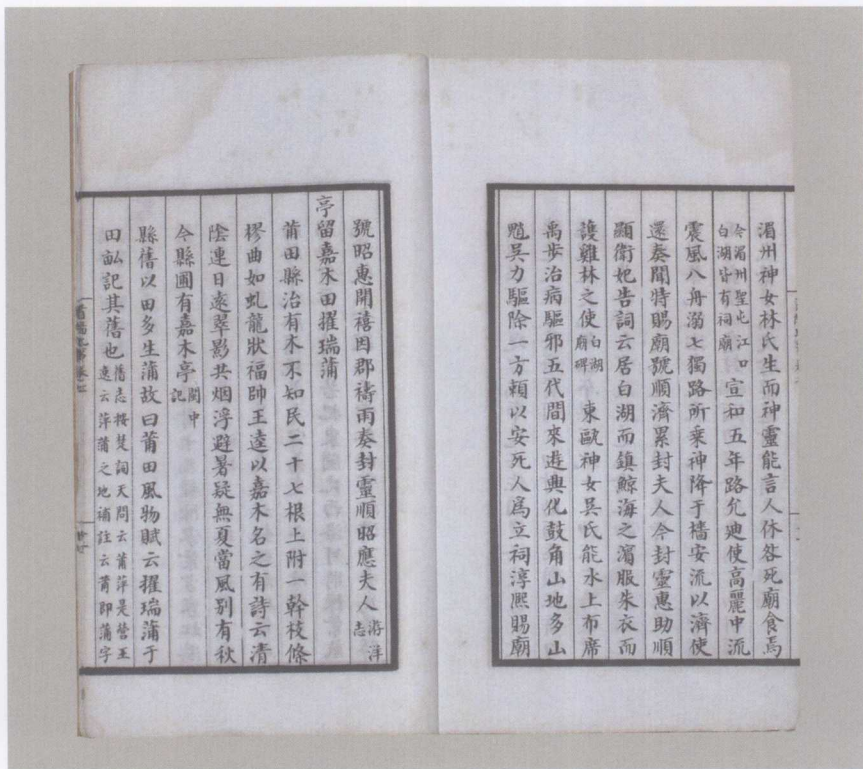 湄州神女林氏生而神靈能言人休咎死廟食焉
今湄州聖屯江口白湖皆有祠廟宣和五年路允迪使高麗中流
震風八舟溺七獨路所乗神降于檣安流以濟使
還奏聞特賜廟號順濟累封夫人今封靈惠助順
顯衛妃告詞云居白湖而鎮鯨海之濵服朱衣而
護雞林之使白湖廟碑東歐神女吳氏能水上布席
禹步治病驅邪五代間來遊興化鼓角山地多山
魈吳力驅除一方頼以安死人爲立祠淳熈賜廟
號昭惠開禧因郡禱雨奏封靈順昭應夫人游洋志
亭留嘉木田擢瑞蒲
莆田縣治有木不知民二十七根上附一幹枝條
樛曲如虬龍狀福帥王逵以嘉木名之有詩云清
陰連日逺翠影共烟浮避暑疑無夏當風别有秋
今縣圃有嘉木亭閩中記
縣舊以田多生蒲故曰莆田風物賦云擢瑞蒲于
田畝記其舊也舊志按楚詞天問云莆雚是營王逸云萑蒲之地補註云莆即蒲字